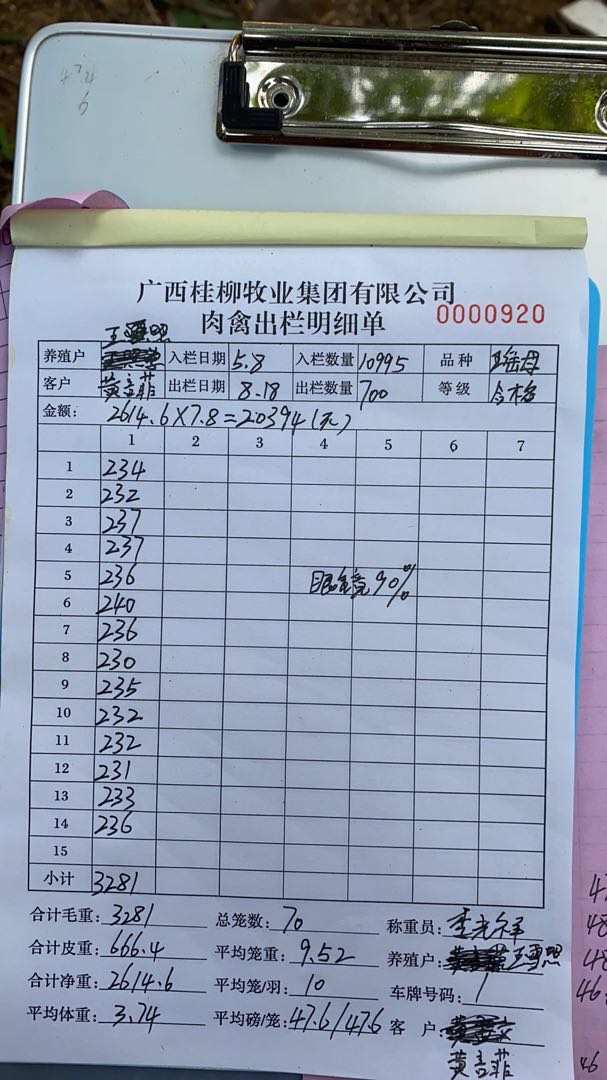 广西桂柳牧业集团有限公司
肉禽出栏明细单 0000920
王雪照
养殖户 入栏日期 5.8 入栏数量 10995 品种
客户 黄言菲 出栏日期 8.18 出栏数量 700 等级 合格
金额: 2614.6×7.8=20394(元)
1 2 3 4 5 6 7
1 234
2 232
3 237
4 237
5 236 眼镜90%
6 240
7 236
8 230
9 235
10 232
11 232
12 231
13 233
14 236
15
小计 3281
合计毛重: 3281 总笼数: 70 称重员:
合计皮重: 666.4 平均笼重: 9.52 养殖户: 王雪照
合计净重: 2614.6 平均笼/羽: 10 车牌号码: /
平均体重: 3.74 平均磅/笼: 47.6/47.6 客户:
黄言菲